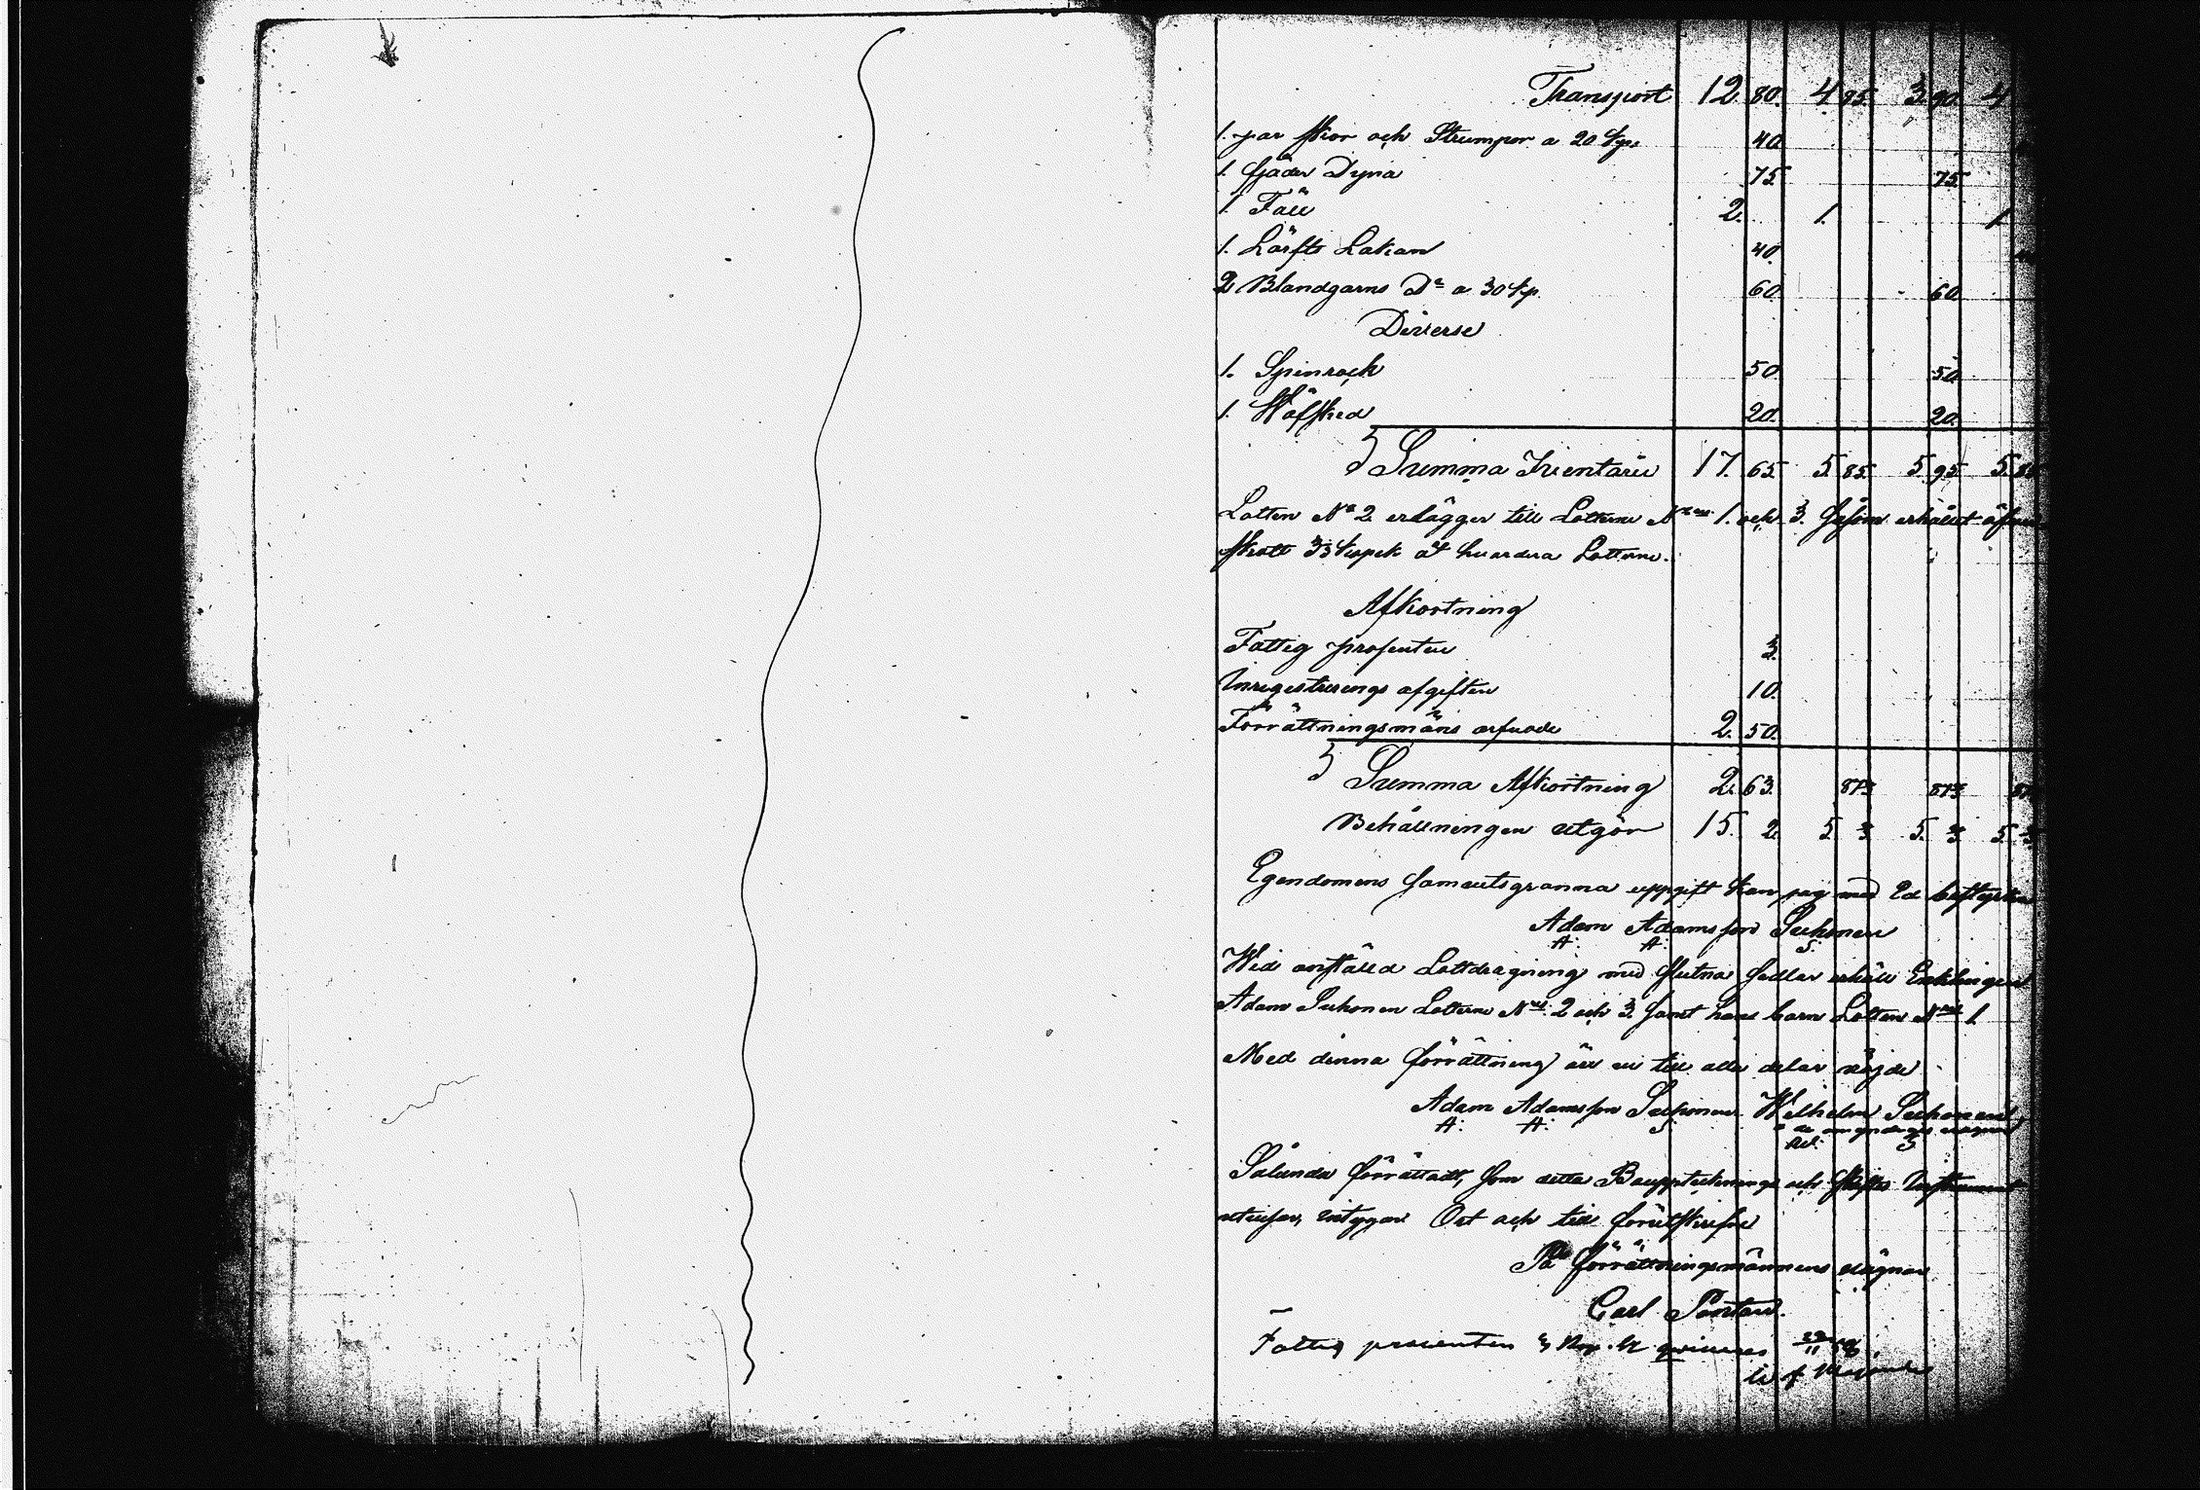 Transport 12. 80. 4 85. 3. 90. 4
1. par skor och Strumpor a 20 kp. 40
1. fjäder Dyna 75. 75.
1. Fäll 2. 1. 1.
1. Lärfts Lakan 40.
2 Blandgarns Do a 30 kp. 60. 60
Diverse
1. Spinrock 50. 50.
1. Wäfsked 20. 20.
Summa Inventarii 17. 65. 5. 85. 5. 95. 5.
Lotten No 2 erlägger till Lotterne 1. och 3. såsom erhållit
skott 3⅓ kopek åt hvardera Lotterne.
Afkortning
Fattig prosenten 3.
Inregistrerings afgiften 10.
Förrättningsmäns arfvode 2. 50.
Summa Afkortning 2. 63. 87⅔ 87⅔
Behållningen utgör 15. 2. 5. ⅔ 5. ⅔ 5.
Egendomens samvetsgranna uppgift kan jag med Ed
Adam Adamsson Suhonen
A: A: S:
Wid anställd Lottdragning med slutna sedlar erhöll Enklingen
Adam Suhonen Lotterne 2 och 3. samt hans barn Lotten 1.
Med denna förrättning äro vi till alla delar nöjde
Adam Adamsson Suhonen. Wilhelm Suhonen
A: A: S:
Sålunda förrättadt, som detta Bouppteknings och Skiftes Instrument
utvisar, intygar Ort och tid förutskrefne
På förrättningsmännens vägnar
Carl Pontan.
Fattig procenten 3 Kop. Sr qvitteras